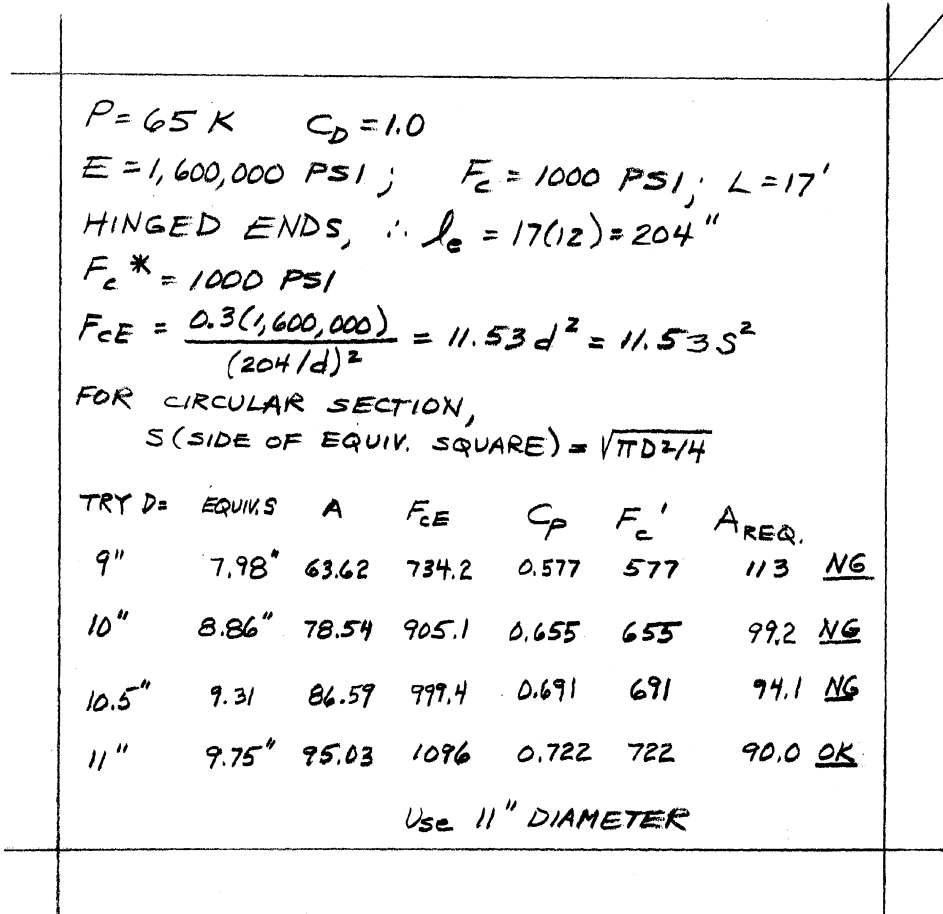 P = 65 K C_D = 1.0
E = 1,600,000 PSI; F_c = 1000 PSI; L = 17'
HINGED ENDS, ∴ l_e = 17(12) = 204"
F_c* = 1000 PSI
F_cE = 0.3(1,600,000) / (204/d)² = 11.53 d² = 11.53 S²
FOR CIRCULAR SECTION,
S (SIDE OF EQUIV. SQUARE) = √(πD²/4)
TRY D= EQUIV. S A F_cE C_P F_c' A_REQ.
9" 7.98" 63.62 734.2 0.577 577 113 NG
10" 8.86" 78.54 905.1 0.655 655 99.2 NG
10.5" 9.31 86.59 999.4 0.691 691 94.1 NG
11" 9.75" 95.03 1096 0.722 722 90.0 OK
Use 11" DIAMETER